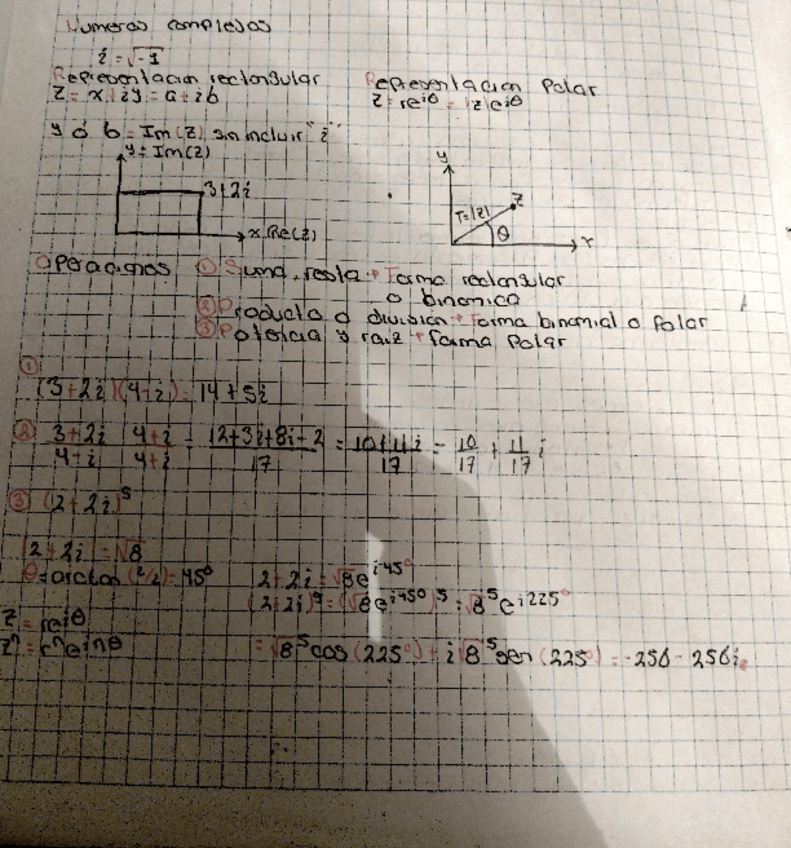 Numeros complejos
i = √-1
Representacion rectangular
Representacion Polar
z = x + iy = a + ib
z = re^iθ = |z|e^iθ
y ó b = Im(z) sin incluir "i"
y = Im(z)
3+2i
x Re(z)
y
z
r=|z|
θ
x
Operaciones ① Suma, resta → Forma rectangular
o binomica
② Producto o división → Forma binomial o Polar
③ Potencia y raiz → forma Polar
①
(3+2i)(4-i) = 14+5i
② 3+2i/4-i 4+i/4+i = 12+3i+8i-2/17 = 10+11i/17 = 10/17 + 11/17 i
③ (2+2i)^5
|2+2i| = √8
θ=arctan (2/2)=45°
2+2i = √8e^i45°
(2+2i)^5 = (√8e^i45°)^5 = √8^5e^i225°
z = re^iθ
z^n = r^n e^inθ
= √8^5 cos(225°) + i√8^5 sen(225°) = -256 - 256i